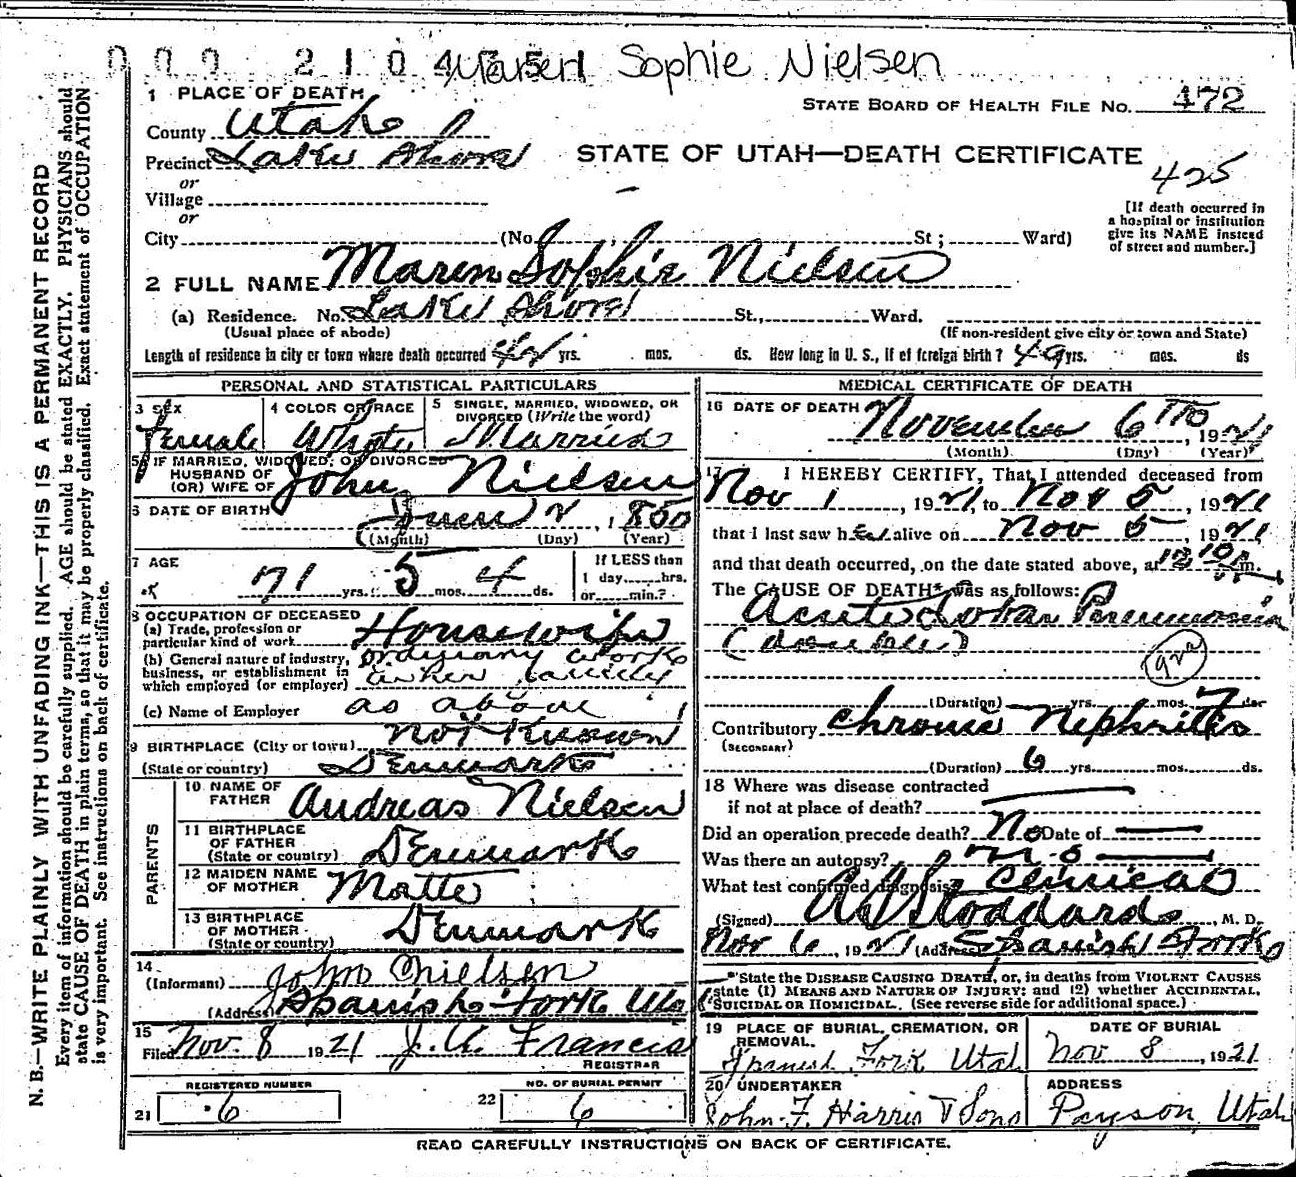 000 210475 Maren Sophie Nielsen
1 PLACE OF DEATH
STATE BOARD OF HEALTH FILE No. 472
County Utah
Precinct Lake Shore
STATE OF UTAH—DEATH CERTIFICATE
425
or
Village
or
City (No. St; Ward)
[If death occurred in
a hospital or institution
give its NAME instead
of street and number.]
2 FULL NAME Maren Sophie Nielsen
(a) Residence. No. Lake Shore St., Ward.
(Usual place of abode) (If non-resident give city or town and State)
Length of residence in city or town where death occurred yrs. mos. ds. How long in U. S., if of foreign birth? 49 yrs. mos. ds
PERSONAL AND STATISTICAL PARTICULARS
3 SEX
Female
4 COLOR OR RACE
White
5 SINGLE, MARRIED, WIDOWED, OR
DIVORCED (Write the word)
Married
5a IF MARRIED, WIDOWED, OR DIVORCED
HUSBAND OF
(OR) WIFE OF John Nielsen
6 DATE OF BIRTH June 2, 1850
(Month) (Day) (Year)
7 AGE
71 yrs. 5 mos. 4 ds.
If LESS than
1 day......hrs.
or......min.?
8 OCCUPATION OF DECEASED
(a) Trade, profession or
particular kind of work Housewife
(b) General nature of industry,
business, or establishment in
which employed (or employer)
ordinary work
in her family
(c) Name of Employer as above
9 BIRTHPLACE (City or town) not Known
(State or country) Denmark
PARENTS
10 NAME OF
FATHER Andreas Nielsen
11 BIRTHPLACE
OF FATHER
(State or country) Denmark
12 MAIDEN NAME
OF MOTHER Matte
13 BIRTHPLACE
OF MOTHER
(State or country) Denmark
14
(Informant) John Nielsen
(Address) Spanish Fork Uta
15
Filed Nov. 8 1921 J. A. Francis
REGISTRAR
REGISTERED NUMBER
21 6
NO. OF BURIAL PERMIT
22 6
MEDICAL CERTIFICATE OF DEATH
16 DATE OF DEATH November 6th, 1921
(Month) (Day) (Year)
17 I HEREBY CERTIFY, That I attended deceased from
Nov 1, 1921, to Nov 5, 1921
that I last saw her alive on Nov 5, 1921
and that death occurred, on the date stated above, at 12 10 A m.
The CAUSE OF DEATH* was as follows:
Acute Lobar Pneumonia
(double)
92a
(Duration) yrs. mos. 7 ds.
Contributory Chronic Nephritis
(SECONDARY)
(Duration) 6 yrs. mos. ds.
18 Where was disease contracted
if not at place of death?
Did an operation precede death? No Date of
Was there an autopsy? no
What test confirmed diagnosis? Clinical
(Signed) A. Stoddard, M. D.
Nov 6, 1921 (Address) Spanish Fork
*State the DISEASE CAUSING DEATH, or, in deaths from VIOLENT CAUSES
state (1) MEANS AND NATURE OF INJURY; and (2) whether ACCIDENTAL,
SUICIDAL OR HOMICIDAL. (See reverse side for additional space.)
19 PLACE OF BURIAL, CREMATION, OR
REMOVAL.
Spanish Fork Utah
DATE OF BURIAL
Nov 8, 1921
20 UNDERTAKER
John F. Harris & Sons
ADDRESS
Payson, Utah
READ CAREFULLY INSTRUCTIONS ON BACK OF CERTIFICATE.
N. B.—WRITE PLAINLY WITH UNFADING INK—THIS IS A PERMANENT RECORD
Every item of information should be carefully supplied. AGE should be stated EXACTLY. PHYSICIANS should
state CAUSE OF DEATH in plain terms, so that it may be properly classified. Exact statement of OCCUPATION
is very important. See instructions on back of certificate.